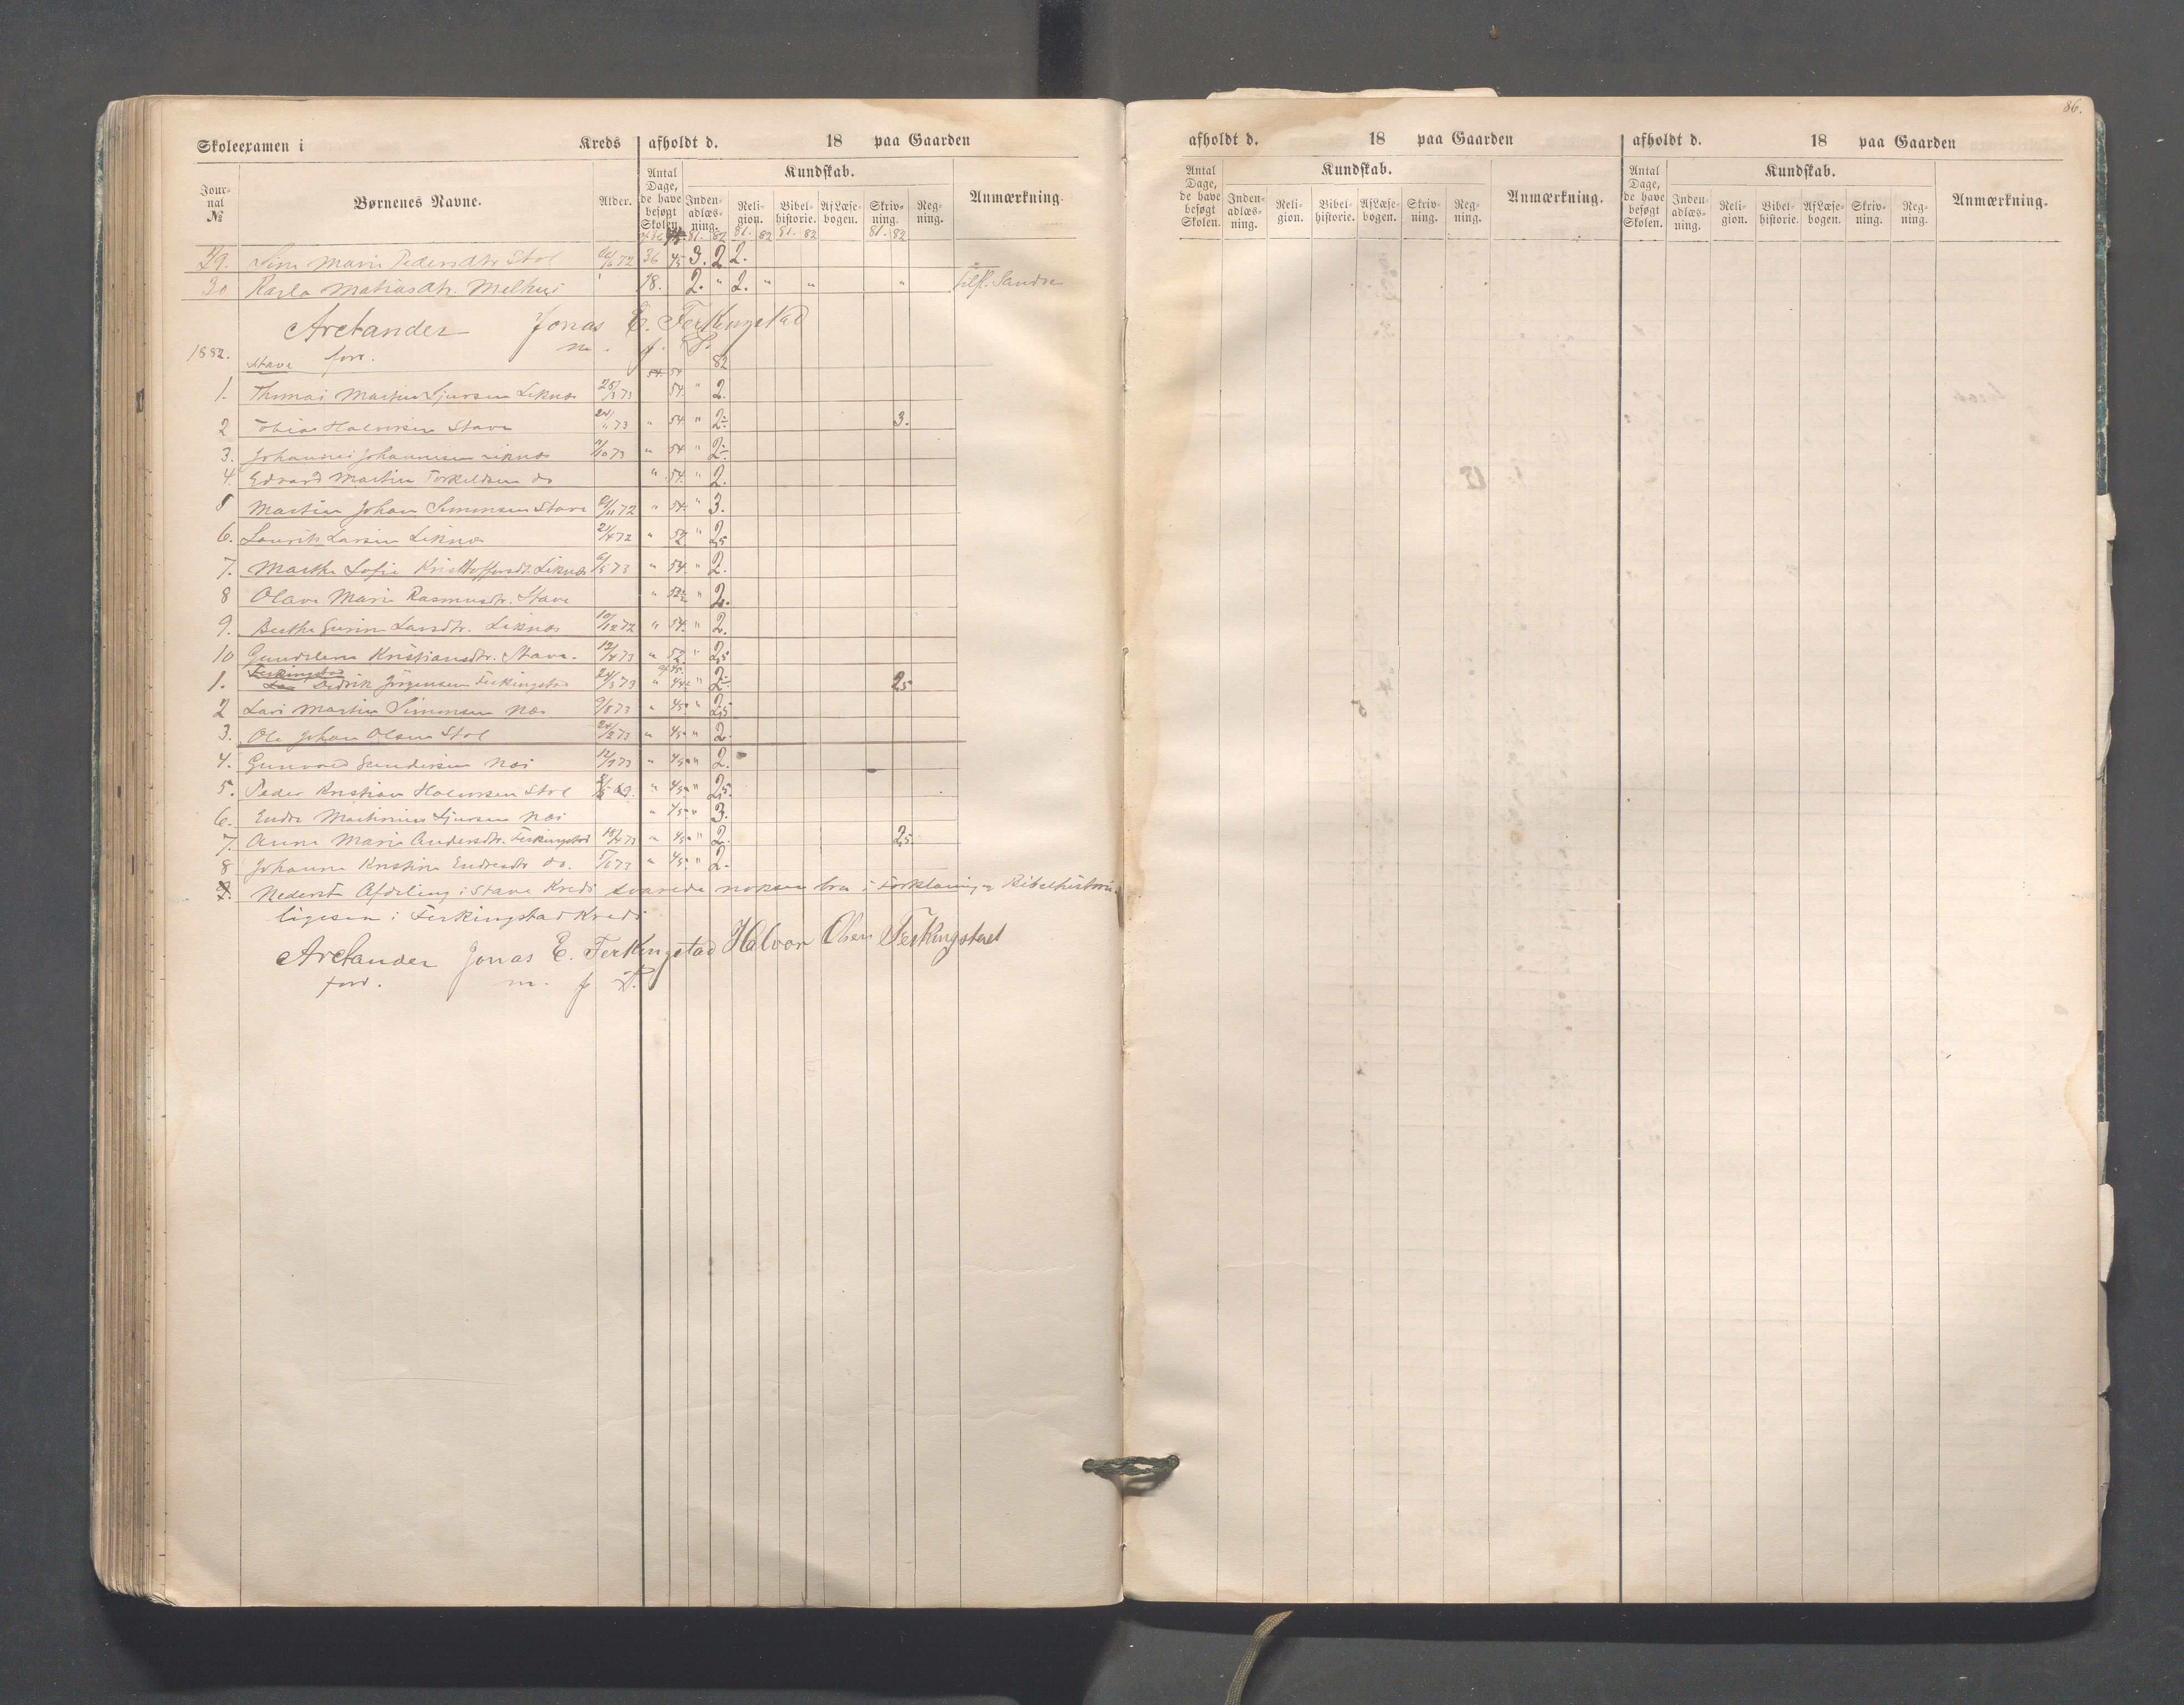 86.
Skoleexamen i Kreds afholdt d. 18 paa Gaarden
Jour-nal № Børnenes Navne. Alder. Antal Dage, de have besøgt Skolen. Kundskab. Inden-adlæs-ning. Reli-gion. Bibel-historie. Af Læse-bogen. Skriv-ning. Reg-ning. Anmærkning.
81. 82 81. 82 81. 82 81. 82
29. Sine Marie Pedersdtr Stol 72 36 45 3. 2 2.
30 Karla Matiasdtr. Melhus " 18. 2. " 2. " " " Sandve
Arctander Jonas E. Ferkingstad
1882. Stave fore. m. f. S. 82
54. 54
1. Thomas Martin Sjursen Liknes 28/3 73 54. " 2.
2 Tobias Halvorsen Stave 24/11 73 " 54 " 2- 3.
3. Johannes Johannesen Liknes 7/10 73 " 54 " 2-
4. Edvard Martin Torkildsen do " 54. " 2.
5 Martin Johan Simonsen Stave 21/11 72 " 54. " 3.
6. Lauritz Larsen Liknes 24/4 72 " 52 " 2,5
7. Marthe Sofie Kristoffersdt. Liknes 6/5 73 " 54. " 2.
8 Olava Marie Rasmusdtr. Stave " 52½ " 2.
9. Berthe Gurine Larsdtr. Liknes 10/12 72 " 54. " 2.
10 Gundelena Kristiansdtr. Stave. 12/4 73 " 52. " 2,5
Ferkingstad af 45.
1. Didrik Jörgensen Ferkingstad 24/3 73 " 44 " 2- 2,5
2 Lars Martin Simonsen Næs 9/8 73 " 45 " 2,5
3. Ole Johan Olsen Stol 24/2 73 " 45 " 2.
4. Gunvald Gundersen Næs 12/3 73 " 45 " 2.
5. Peder Kristian Halvorsen Stol 69. " 45 " 2,5.
6. Endre Martinius Sjursen Næs " 45 " 3.
7. Anna Marie Andersdtr. Ferkingstad 18/4 73 " 45 " 2. 2,5
8 Johanne Kristine Endresdtr do. 1/6 73 " 45. " 2.
9. Nederste Afdeling i Stave Kreds svarede noksaa bra i Forklaring og Bibelhistorie
ligesaa i Ferkingstad Kreds
Arctander Jonas E. Ferkingstad Halvor Olsen Ferkingstad
fore. m. f S.
afholdt d. 18 paa Gaarden
Antal Dage, de have besøgt Skolen. Kundskab. Inden-adlæs-ning. Reli-gion. Bibel-historie. Af Læse-bogen. Skriv-ning. Reg-ning. Anmærkning.
afholdt d. 18 paa Gaarden
Antal Dage, de have besøgt Skolen. Kundskab. Inden-adlæs-ning. Reli-gion. Bibel-historie. Af Læse-bogen. Skriv-ning. Reg-ning. Anmærkning.